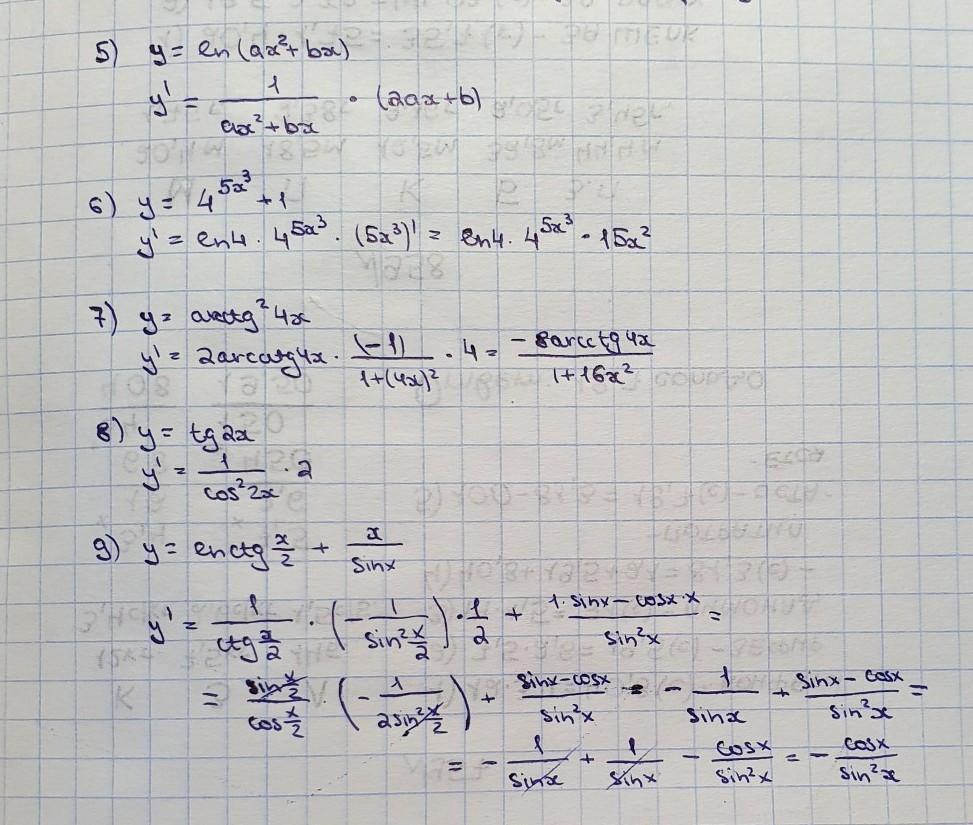 5) y = ln (ax²+ bx)
y' = 1/(ax²+bx) · (2ax+b)
6) y = 4^(5x³) + 1
y' = ln4 · 4^(5x³) · (5x³)' = ln4 · 4^(5x³) · 15x²
7) y = arcctg² 4x
y' = 2arcctg4x · (-1)/(1+(4x)²) · 4 = -8arcctg4x/(1+16x²)
8) y = tg2x
y' = 1/(cos²2x) · 2
9) y = ln ctg x/2 + x/sinx
y' = 1/(ctg x/2) · (- 1/(sin² x/2)) · 1/2 + (1·sinx - cosx·x)/(sin²x) =
= (sin x/2)/(cos x/2) · (- 1/(2sin² x/2)) + (sinx-cosx)/(sin²x) = - 1/sinx + (sinx - cosx)/(sin²x) =
= - 1/sinx + 1/sinx - cosx/(sin²x) = - cosx/(sin²x)